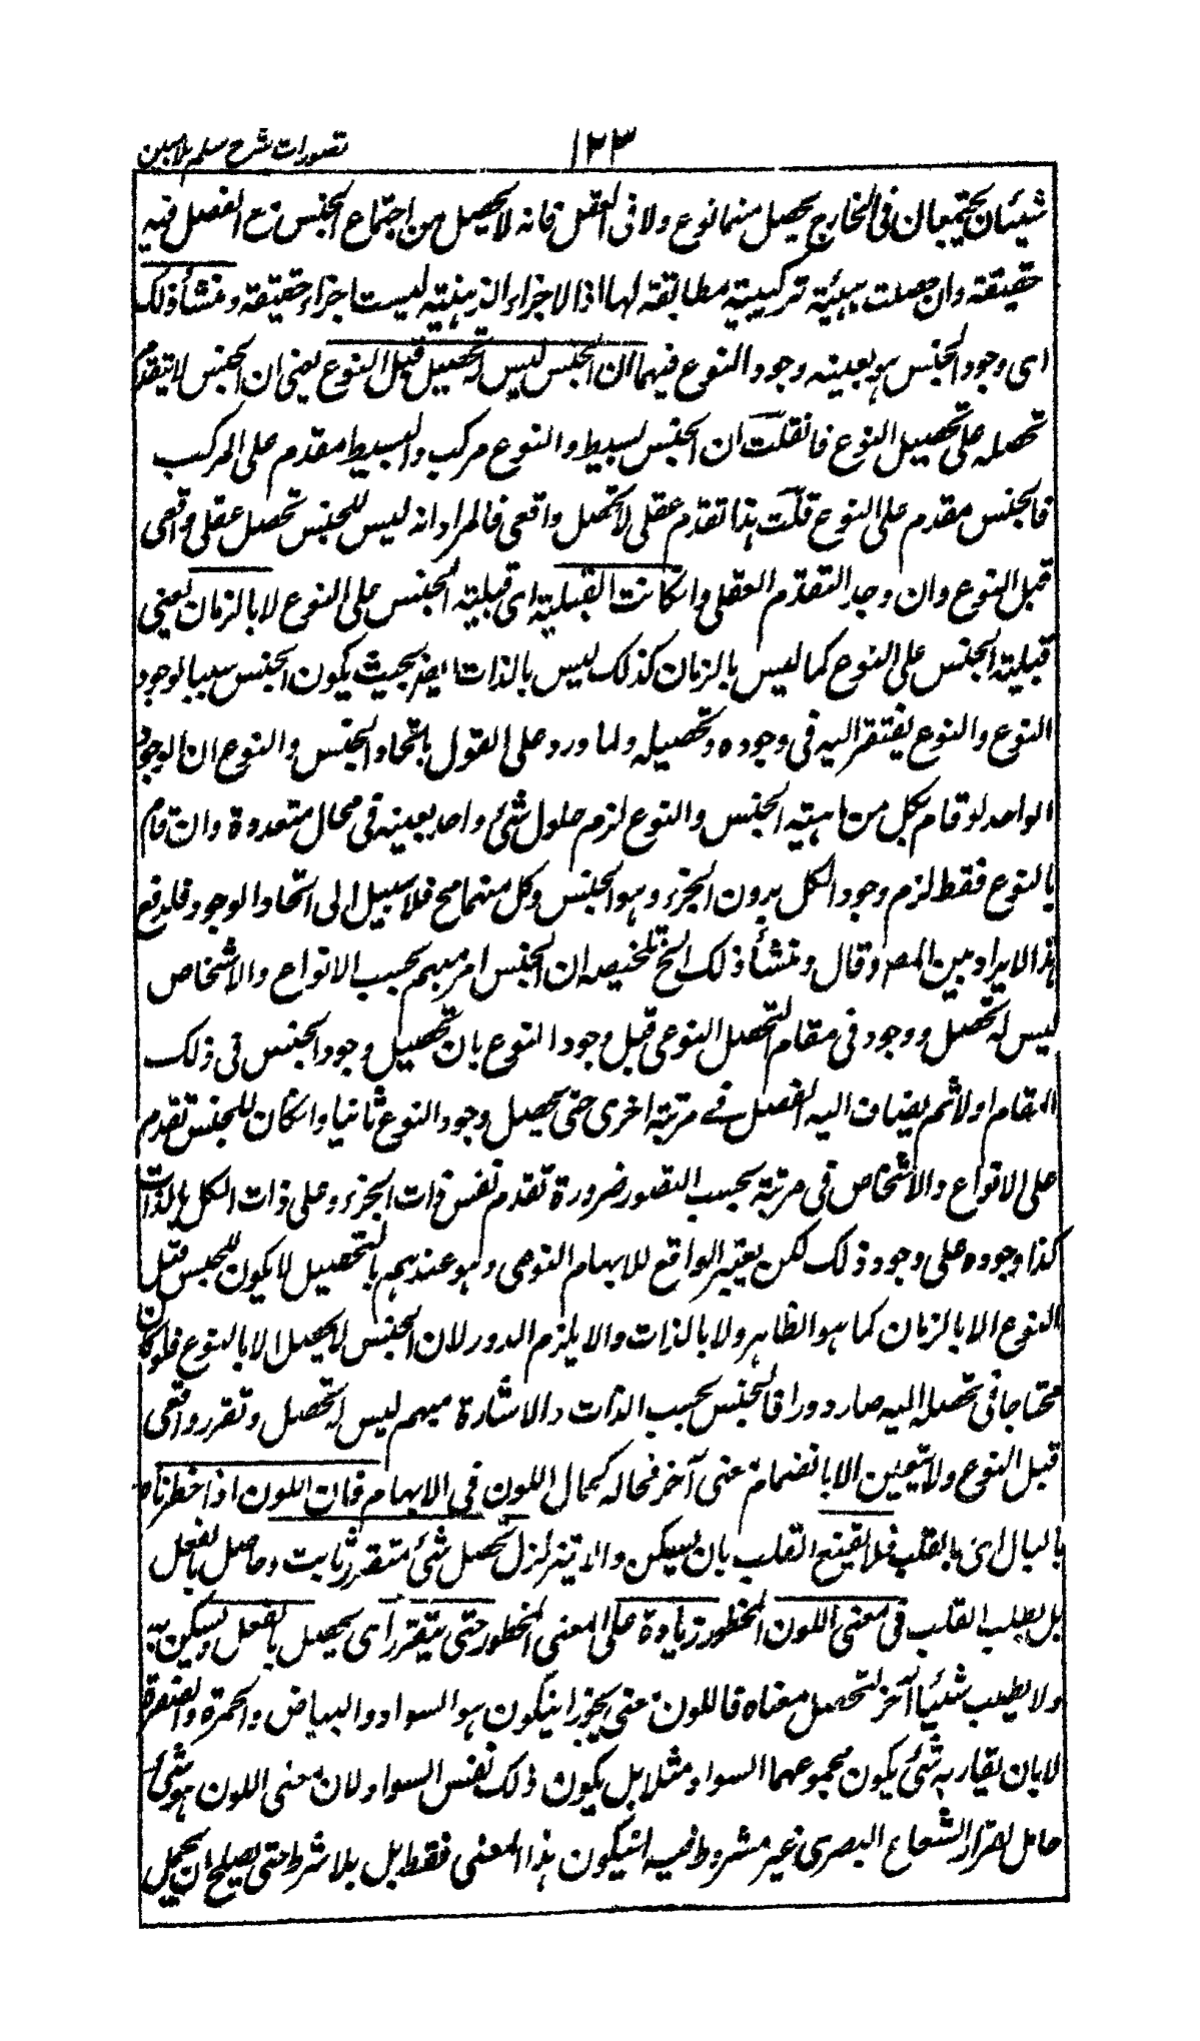 ١٢٣
تصورات شرح سلم ملا مبین
شیئان یجتمعان فی الخارج یحصل منهما نوع ولا فی العقل فانه لا یحصل من اجتماع الجنس مع الفصل فیه
حقیقة وان حصلت هیئة ترکیبیة مطابقة لها اذا الاجزاء الذهنیة لیست اجزاء حقیقة ومنشأ ذلک
ای وجود الجنس هو بعینه وجود النوع فیهما ان الجنس لیس له تحصیل قبل النوع یعنی ان الجنس لا یتقدم
تحصله علی تحصیل النوع فانقلت ان الجنس بسیط والنوع مرکب والبسیط مقدم علی المرکب
فالجنس مقدم علی النوع قلت هذا تقدم عقلی لا تحصل واقعی فالمراد انه لیس للجنس تحصل عقلی واقعی
قبل النوع وان وجد التقدم العقلی وانکانت القبلیة ای قبلیة الجنس علی النوع لا بالزمان یعنی
قبلیة الجنس علی النوع کما لیس بالزمان کذلک لیس بالذات ایضا بحیث یکون الجنس سببا لوجود
النوع والنوع یفتقر الیه فی وجوده وتحصیله ولما ورد علی القول باتحاد الجنس والنوع ان الوجود
الواحد لو قام بکل من ماهیة الجنس والنوع لزم حلول شئ واحد بعینه فی محال متعددة وان قام
بالنوع فقط لزم وجود الکل بدون الجزء وهو الجنس وکل منهما مح فلا سبیل الی اتحاد الوجود فلدفع
هذا الایراد مبین المصر وقال ومنشأ ذلک الخ تلخیصه ان الجنس امر مبهم بحسب الانواع والاشخاص
لیس له تحصل ووجود فی مقام التحصل النوعی قبل وجود النوع بان تحصیل وجود الجنس فی ذلک
المقام اولا ثم یضاف الیه الفصل فی مرتبة اخری حتی یحصل وجود النوع ثانیا وانکان للجنس تقدم
علی الانواع والاشخاص فی مرتبة بحسب التصور ضرورة تقدم نفس ذات الجزء وعلی ذات الکل بالذات
کذا وجوده علی وجود ذلک لکن یعتبر الواقع للابهام النوعی وهو عندهم بالتحصیل لا یکون للجنس قبل
النوع الا بالزمان کما هو الظاهر ولا بالذات والا یلزم الدور لان الجنس لا یحصل الا بالنوع فلو کان
محتاجا فی تحصله الیه صار دورا فالجنس بحسب الذات والاشارة مبهم لیس له تحصل وتقرر واقعی
قبل النوع ولا یتعین الا بانضمام معنی آخر فحاله کحال اللون فی الابهام فان اللون اذا خطرناه
بالبال ای بالقلب فلا یقنع القلب بان یسکن ولا یتزلزل تحصل شئ متقرر ثابت وحاصل بالفعل
بل یطلب القلب فی معنی اللون المخطور زیادة علی المعنی المخطور حتی یتقرر ای یحصل بالفعل ویسکن به
ولا یطلب شیئا آخر لتحصل معناه فاللون معنی یجوز ان یکون هو السواد والبیاض والحمرة والصفرة
لا بان یقارنه شئ یکون مجموعهما السواد مثلا بل یکون ذلک نفس السواد لان معنی اللون هو شئ
حامل لقرار الشعاع البصری غیر مشروط فیه ان یکون هذا المعنی فقط بل بلا شرط حتی یصلح ان یحمل